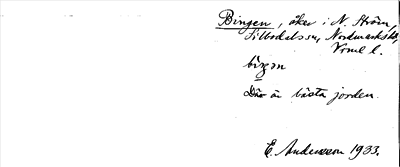 Bingen, åker i N. Ström,
Silbodals sn, Nordmarks hd,
Vrml l.
biŋən
Där är bästa jorden.
E. Andersson 1933.